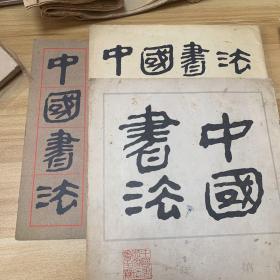 中國書法
中國書法
中國
書法